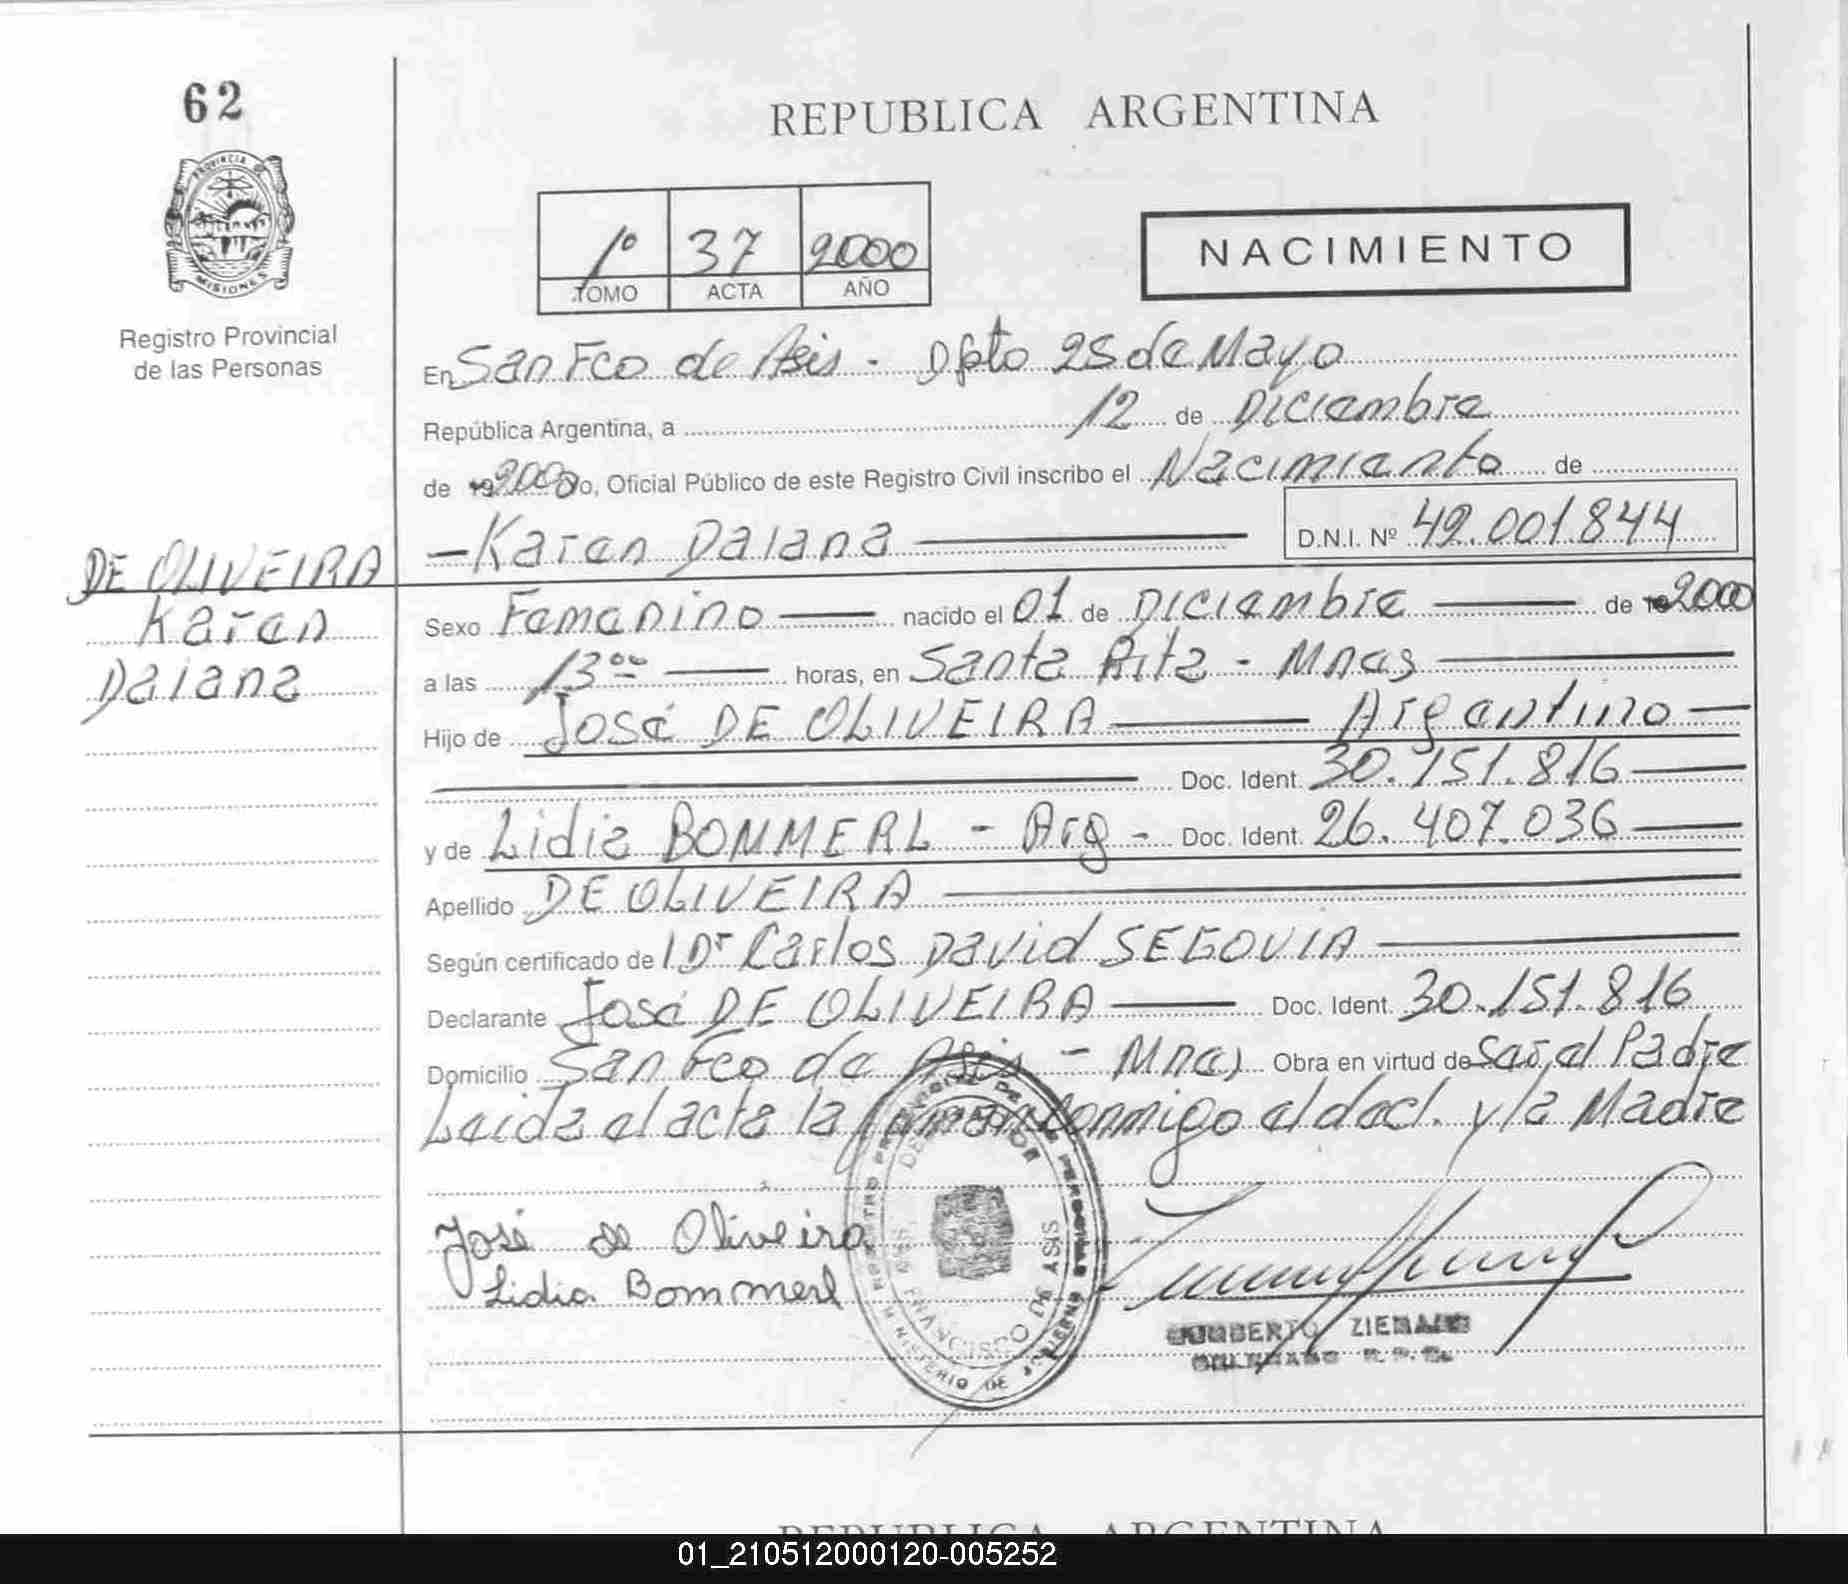 62
PROVINCIA DE
MISIONES
Registro Provincial
de las Personas
REPUBLICA ARGENTINA
1º 37 2000
TOMO ACTA AÑO
NACIMIENTO
En San Fco de Asis - Dpto 25 de Mayo
República Argentina, a 12 de Diciembre
de 2000, Oficial Público de este Registro Civil inscribo el Nacimiento de
- Karen Daiana
D.N.I. Nº 42.001.844
DE OLIVEIRA
Karen
Daiana
Sexo Femenino nacido el 01 de Diciembre de 2000
a las 13 00 horas, en Santa Rita - Mnes
Hijo de José DE OLIVEIRA Argentino
Doc. Ident. 30.151.816
y de Lidia BOMMERL - Arg - Doc. Ident. 26.407.036
Apellido DE OLIVEIRA
Según certificado de Dr Carlos David SEGOVIA
Declarante José DE OLIVEIRA Doc. Ident. 30.151.816
Domicilio San Fco de Asis - Mnes Obra en virtud de Ser el Padre
Leida el acta la firman conmigo el decl. y la Madre
José de Oliveira
Lidia Bommerl
FRANCISCO DE ASIS
MINISTERIO DE
REPUBLICA ARGENTINA
01_210512000120-005252